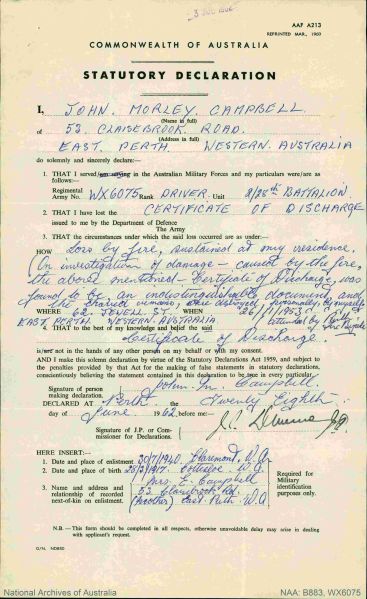 AAF A213
REPRINTED MAR., 1960
COMMONWEALTH OF AUSTRALIA
STATUTORY DECLARATION
I, JOHN. MORLEY. CAMPBELL.
(Name in full)
of 53. CLAISEBROOK. ROAD.
(Address in full)
EAST. PERTH. WESTERN. AUSTRALIA
do solemnly and sincerely declare:—
1. THAT I served/ in the Australian Military Forces and my particulars were/are as
follows:—
Regimental
Army No. WX6075 Rank DRIVER. Unit 2/28th BATTALION
2. THAT I have lost the CERTIFICATE OF DISCHARGE
issued to me by the Department of Defence
The Army
3. THAT the circumstances under which the said loss occurred are as under:—
HOW Loss by fire, sustained at my residence.
On investigation of damage - caused by the fire,
the above mentioned - Certificate of Discharge, was
found to be an undistinguishable document, and
the charred remains, were destroyed, personally, by myself
WHERE 62. JEWELL ST. WHEN 26/1/1953 attended by
EAST PERTH WESTERN AUSTRALIA Fire Brigade
4. THAT to the best of my knowledge and belief the said
Certificate of Discharge.
is/are not in the hands of any other person on my behalf or with my consent.
AND I make this declaration by virtue of the Statutory Declarations Act 1959, and subject to
the penalties provided by that Act for the making of false statements in statutory declarations,
conscientiously believing the statement contained in this declaration to be true in every particular.
Signature of person
making declaration. John M. Campbell.
DECLARED AT Perth the Twenty Eighth
day of June 1962 before me:—
Signature of J.P. or Com-
missioner for Declarations.
HERE INSERT:—
1. Date and place of enlistment 30/7/1940. Claremont, W.A.
2. Date and place of birth 28/3/1917. Cottesloe. W.A.
3. Name and address and
relationship of recorded
next-of-kin on enlistment.
Mrs. E. Campbell
53. Claisebrook Rd.
(Mother) East Perth. W.A
Required for
Military
identification
purposes only.
N.B.—This form should be completed in all respects, otherwise unavoidable delay may arise in dealing
with applicant's request.
National Archives of Australia
NAA: B883, WX6075